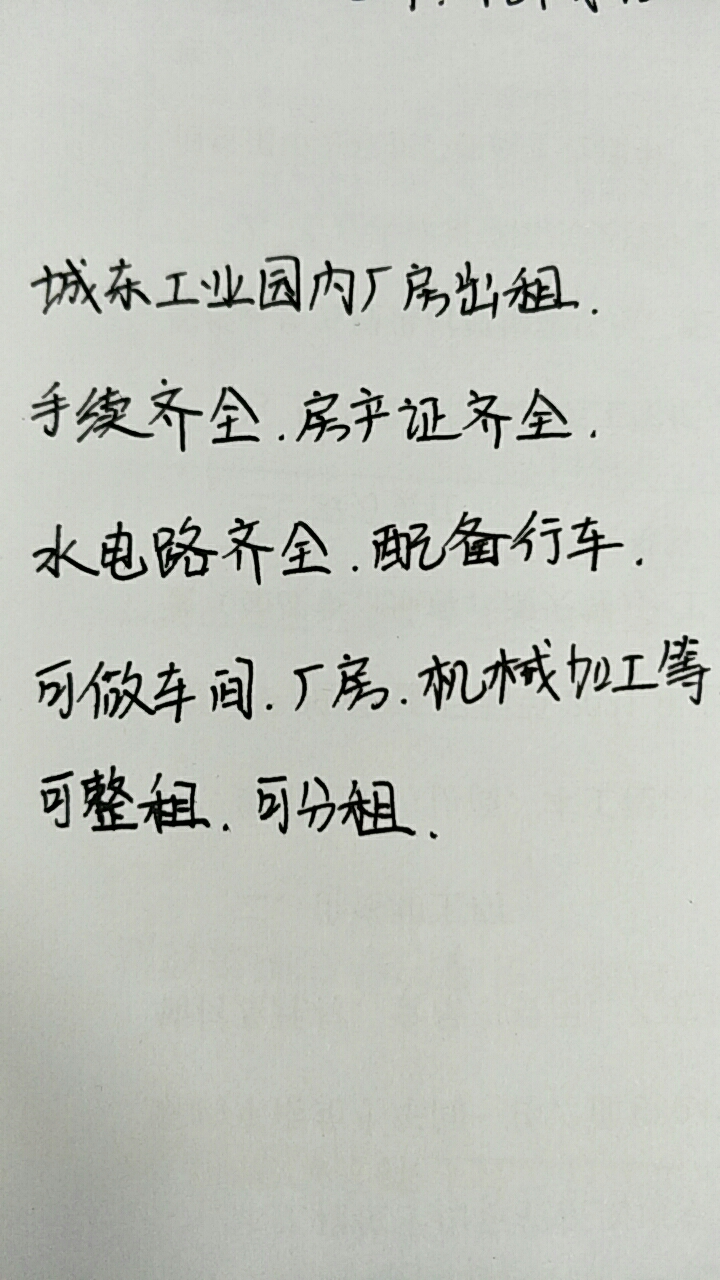 城东工业园内厂房出租.
手续齐全.房产证齐全.
水电路齐全.配备行车.
可做车间.厂房.机械加工等
可整租.可分租.